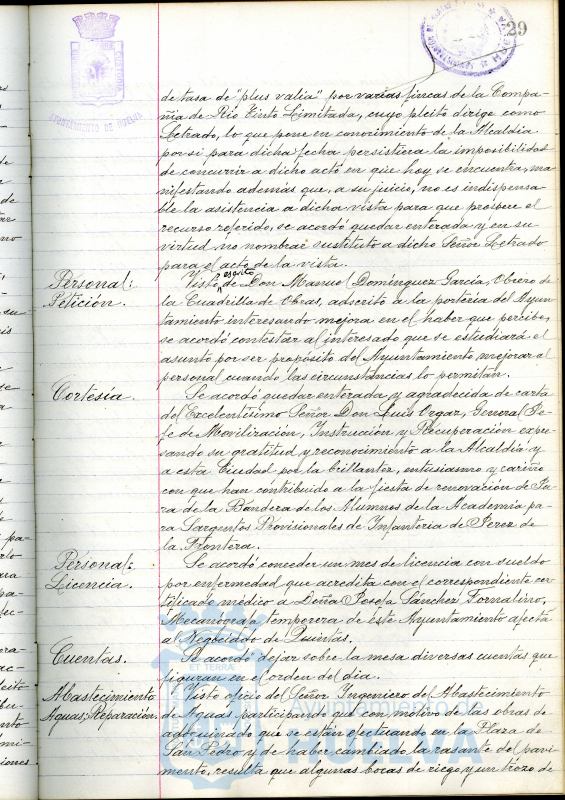 29
AYUNTAMIENTO DE HUELVA
de tasa de "plus valia" por varias fincas de la Compa-
ñia de Rio Tinto Limitada, cuyo pleito dirige como
Letrado, lo que pone en conocimiento de la Alcaldia
por si para dicha fecha persistiera la imposibilidad
de concurrir a dicho acto en que hoy se encuentra, ma
nifestando además que, a su juicio, no es indispensa-
ble la asistencia a dicha vista para que prospere el
recurso referido, se acordó quedar enterada y en su
virtud no nombrar sustituto a dicho Señor Letrado
para el acto de la vista.
Personal:
Petición.
Visto escrito de Don Manuel Domínguez García, Obrero de
la Cuadrilla de Obras, adscrito a la porteria del Ayun-
tamiento interesando mejora en el haber que percibe,
se acordó contestar al interesado que se estudiará el
asunto por ser propósito del Ayuntamiento mejorar al
personal cuando las circunstancias lo permitan.
Cortesía.
Se acordó quedar enterada y agradecida de carta
del Excelentísimo Señor Don Luis Orgaz, General Je-
fe de Movilización, Instrucción y Recuperación expre
sando su gratitud y reconocimiento a la Alcaldía y
a esta Ciudad por la brillantez, entusiasmo y cariño
con que han contribuido a la fiesta de renovación de Ju
ra de la Bandera de los Alumnos de la Academia pa-
ra Sargentos Provisionales de Infanteria de Jerez de
la Frontera.
Personal:
Licencia.
Se acordó conceder un mes de licencia con sueldo
por enfermedad que acredita con el correspondiente cer
tificado médico a Doña Josefa Sánchez Tornalino,
Mecanógrafa temporera de este Ayuntamiento afecta
al Negociado de Quintas.
Cuentas.
Se acordó dejar sobre la mesa diversas cuentas que
figuran en el orden del dia.
Abastecimiento
Aguas; Reparación.
Visto oficio del Señor Ingeniero del Abastecimiento
de Aguas participando que con motivo de las obras de
adoquinado que se están efectuando en la Plaza de
San Pedro y de haber cambiado la rasante del pavi-
mento, resulta que algunas bocas de riego y un trozo de
Ayuntamiento de
HUELVA